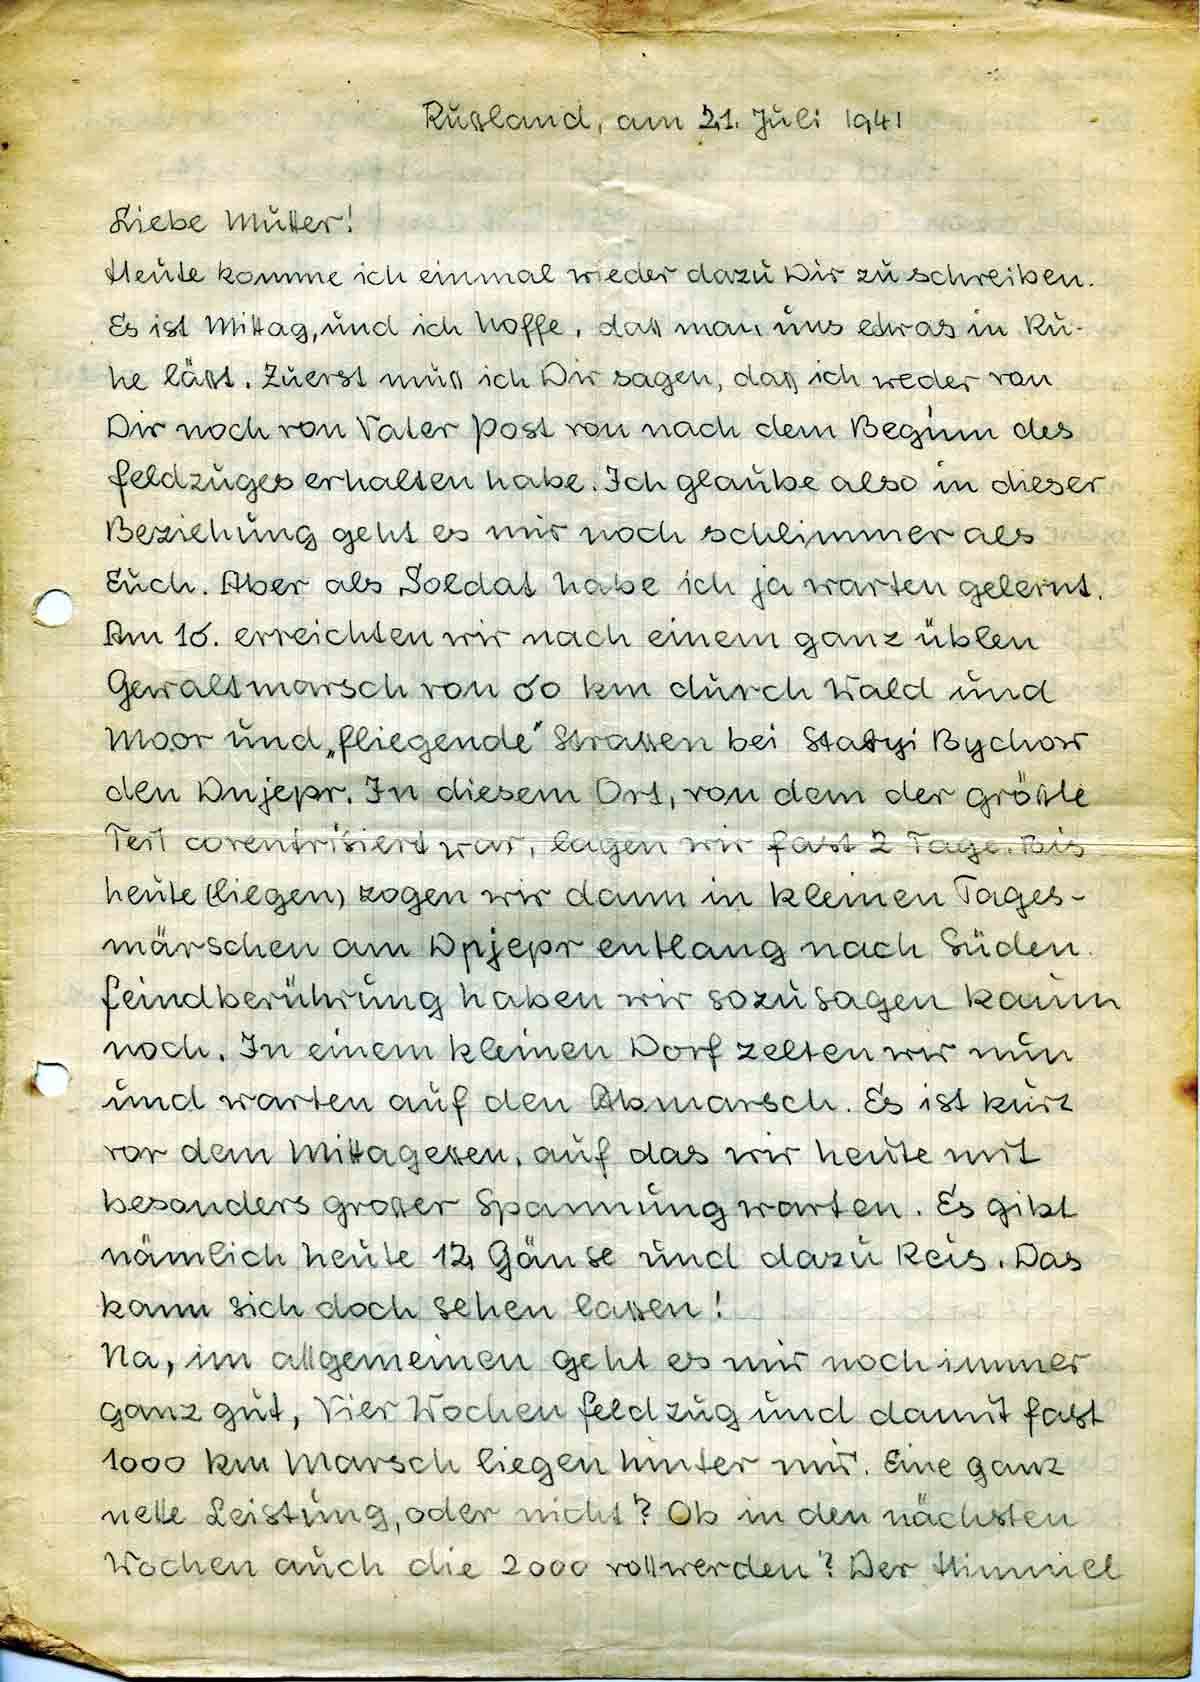 Rußland, am 21. Juli 1941
Liebe Mutter!
Heute komme ich einmal wieder dazu Dir zu schreiben.
Es ist Mittag, und ich hoffe, daß man uns etwas in Ru-
he läßt. Zuerst muß ich Dir sagen, daß ich weder von
Dir noch von Vater Post von nach dem Beginn des
Feldzuges erhalten habe. Ich glaube also in dieser
Beziehung geht es mir noch schlimmer als
Euch. Aber als Soldat habe ich ja warten gelernt.
Am 16. erreichten wir nach einem ganz üblen
Gewaltmarsch von 60 km durch Wald und
Moor und „fliegende“ Strassen bei Staryi Bychow
den Dnjepr. In diesem Ort, von dem der größte
Teil war, lagen wir fast 2 Tage. Bis
heute (liegen) zogen wir dann in kleinen Tages-
märschen am Dnjepr entlang nach Süden.
Feindberührung haben wir sozusagen kaum
noch. In einem kleinen Dorf zelten wir nun
und warten auf den Abmarsch. Es ist kurz
vor dem Mittagessen, auf das wir heute mit
besonders großer Spannung warten. Es gibt
nämlich heute 12 Gänse und dazu Reis. Das
kann sich doch sehen lassen!
Na, im allgemeinen geht es mir noch immer
ganz gut, Vier Wochen Feldzug und damit fast
1000 km Marsch liegen hinter mir. Eine ganz
nette Leistung, oder nicht? Ob in den nächsten
Wochen auch die 2000 vollwerden? Der Himmel